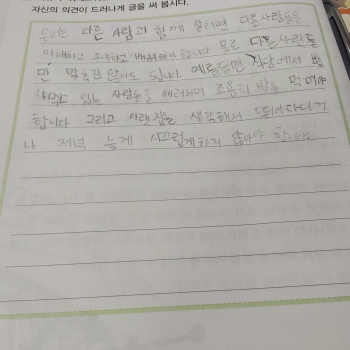 자신의 의견이 드러나게 글을 써 봅시다.
우리는 다른 사람과 함께 살려면 다른사람들을
이해하고 존중하고 배려해야 합니다 모로 다른사람들
만 맞추진 않아도 됩니다 예를들면 식당에서 밥
먹고 있는 사람들을 배려하며 조용히 밥을 먹어야
합니다 그리고 아랫집을 생각해서 뛰어다니거
나 저녁 늦게 시끄럽게하지 않아야 합니다